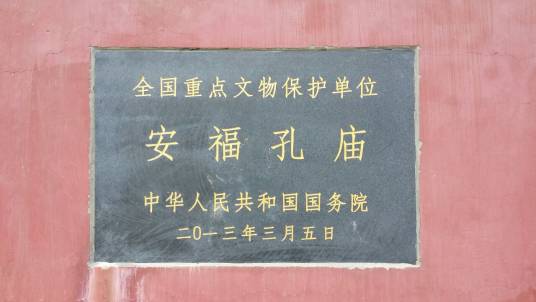 全国重点文物保护单位
安福孔庙
中华人民共和国国务院
二〇一三年三月五日